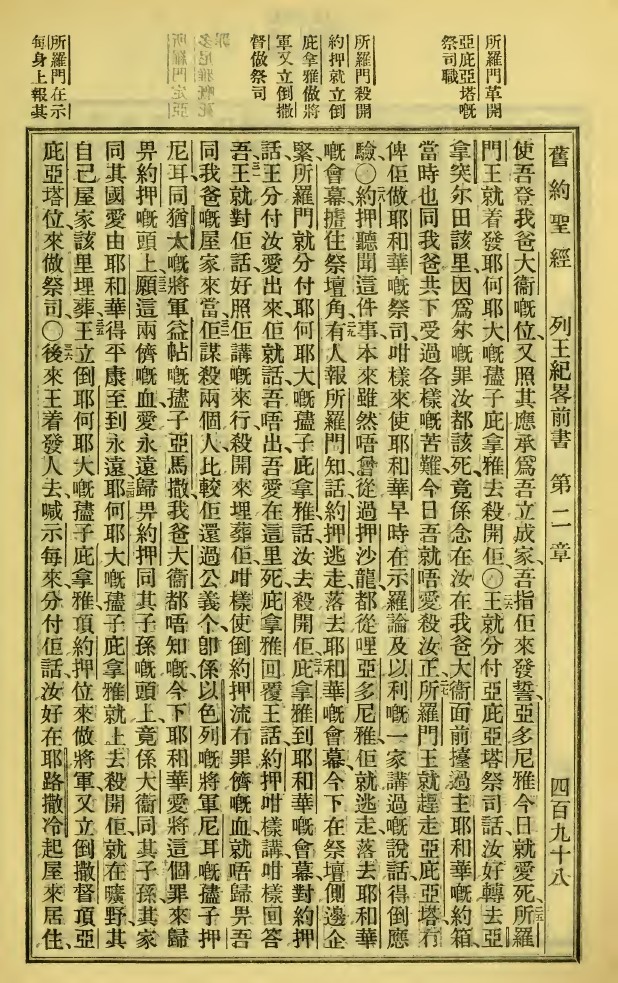 所羅門革開
亞庇亞塔嘅
祭司職
所羅門殺開
約押就立倒
庇拿雅做將
軍又立倒撒
督做祭司
所羅門在示
每身上報其
舊約聖經 列王紀畧前書 第二章 四百九十八
使吾登我爸大衞嘅位、又照其應承爲吾立成家、吾指佢來發誓、亞多尼雅今日就愛死、二五所羅
門王就着發耶何耶大嘅孻子庇拿雅去殺開佢、〇二六王就分付亞庇亞塔祭司話、汝好轉去亞
拿突尔田該里、因爲尔嘅罪汝都該死、竟係念在汝在我爸大衞面前擡過主耶和華嘅約箱、
當時也同我爸共下受過各樣嘅苦難、今日吾就唔愛殺汝正、二七所羅門王就趕走亞庇亞塔冇
俾佢做耶和華嘅祭司、咁樣來使耶和華早時在示羅論及以利嘅一家講過嘅說話得倒應
驗、〇二八約押聽聞這件事、本來雖然唔曾從過押沙龍、都從哩亞多尼雅、佢就逃走落去耶和華
嘅會幕、揸住祭壇角、二九有人報所羅門知話、約押逃走落去耶和華嘅會幕、今下在祭壇側邊企
緊、所羅門就分付耶何耶大嘅孻子庇拿雅話、汝去殺開佢、三十庇拿雅到耶和華嘅會幕、對約押
話、王分付汝愛出來、佢就話、吾唔出、吾愛在這里死、庇拿雅回覆王話、約押咁樣講咁樣回答
吾、三一王就對佢話、好照佢講嘅來行、殺開來埋葬佢、咁樣使倒約押流冇罪儕嘅血就唔歸畀吾
同我爸嘅屋家來當、三二佢謀殺兩個人比較佢還過公義个、卽係以色列嘅將軍尼耳嘅孻子押
尼耳同猶太嘅將軍益帖嘅孻子亞馬撒、我爸大衞都唔知嘅、今下耶和華愛將這個罪來歸
畀約押嘅頭上、三三願這兩儕嘅血愛永遠歸畀約押同其子孫嘅頭上、竟係大衞同其子孫、其家
同其國愛由耶和華得平康至到永遠、三四耶何耶大嘅孻子庇拿雅就上去殺開佢、就在曠野其
自己屋家該里埋葬、三五王立倒耶何耶大嘅孻子庇拿雅項約押位來做將軍、又立倒撒督項亞
庇亞塔位來做祭司、〇三六後來王着發人去喊示每來、分付佢話、汝好在耶路撒冷起屋來居住、